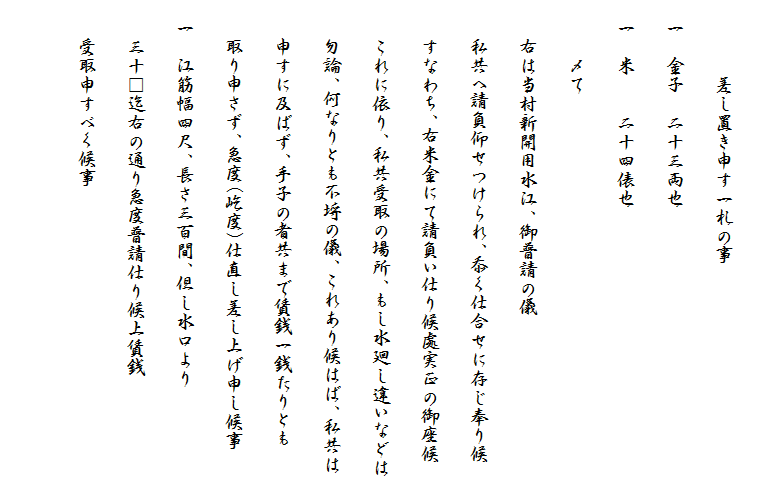 差し置き申す一札の事
一　金子　二十三両也
一　米　　二十四俵也
〆て
右は当村新開用水江、御普請の儀
私共へ請負仰せつけられ、忝く仕合せに存じ奉り候
すなわち、右米金にて請負い仕り候處実正の御座候
これに依り、私共受取の場所、もし水廻し違いなどは
勿論、何なりとも不埒の儀、これあり候はば、私共は
申すに及ばず、手子の者共まで賃銭一銭たりとも
取り申さず、急度(屹度)仕直し差し上げ申し候事
一　江筋幅四尺、長さ三百間、但し水口より
三十□迄右の通り急度普請仕り候上賃銭
受取申すべく候事